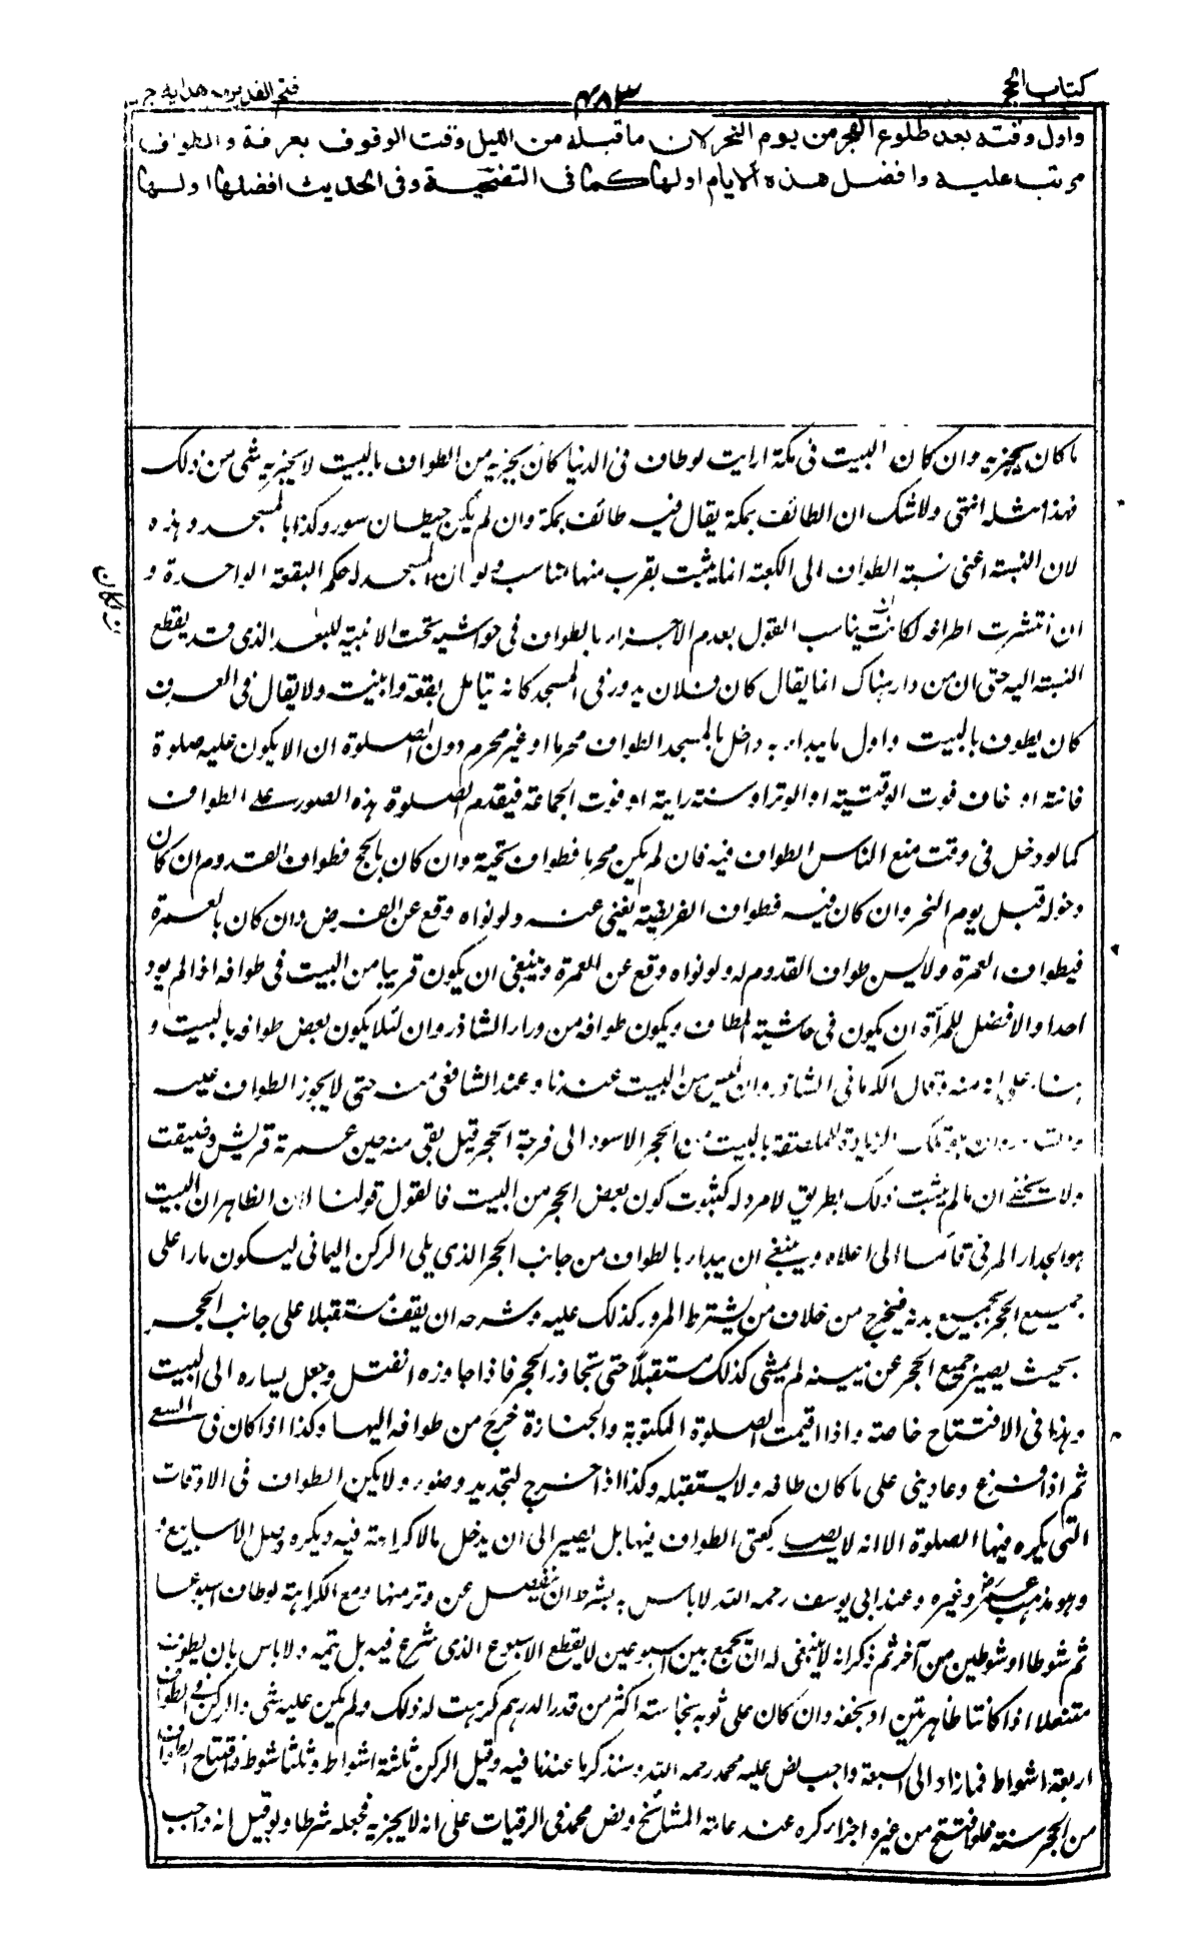 كتاب الحج
۴۸۳
فتح القدير مع هدايه ج
واول وقته بعد طلوع الفجر من يوم النحر لان ما قبله من الليل وقت الوقوف بعرفة والطواف
مرتب عليه وافضل هذه الايام اولها كما فى التضحية وفى الحديث افضلها اولها
ما كان يجزيه وان كان البيت فى مكة ارايت لو طاف فى الدنيا كان يجزيه من الطواف بالبيت لا يجزيه شى من ذلك
فهذا مثله انتهى ولا شك ان الطائف بمكة يقال فيه طائف بمكة وان لم يكن حيطان سور وكذا بالمسجد وهذه
لان النسبة اعنى نسبة الطواف الى الكعبة انما يثبت بقرب منها مناسب ولو ان المسجد له حكم البقعة الواحدة و
ان انتشرت اطرافه لكانت يناسب القول بعدم الاجزاء بالطواف فى حواشيه تحت الابنية للبعد الذى قد يقطع
النسبة اليه حتى ان من دار هناك انما يقال كان فلان يدور فى المسجد كانه يتامل بقعه وابنيته ولا يقال فى العرف
كان يطوف بالبيت واول ما يبدأ به داخل المسجد الطواف محرما او غير محرم دون الصلوة ان الا يكون عليه صلوة
فائتة او خاف فوت الوقتية او الوتر او سنة راتبة او فوت الجماعة فيقدم الصلوة هذه الصور على الطواف
كما لو دخل فى وقت منع الناس الطواف فيه فان لم يكن محرما فطواف تحية وان كان بالحج فطواف القدوم ان كان
دخوله قبل يوم النحر وان كان فيه فطواف الفريضة يغنى عنه ولو نواه وقع عن الفرض وان كان بالعمرة
فبطواف العمرة ولا يسن طواف القدوم له ولو نواه وقع عن العمرة وينبغى ان يكون قريبا من البيت فى طوافه اذا لم يوذ
احدا والافضل للمرأة ان يكون فى حاشية المطاف ويكون طوافه من وراء الشاذروان لئلا يكون بعض طوافه بالبيت و
بناء على انه منه وقال الكرمانى الشاذروان ليس من البيت عندنا وعند الشافعى منه حتى لا يجوز الطواف عليه
والشاذروان هو تلك الزيادة الملصقة بالبيت من الحجر الاسود الى فرجة الحجر قيل بقى منه حين عمرته قريش وضيقت
ولا يخفى ان ما لم يثبت ذلك بطريق لا مرد له كثبوت كون بعض الحجر من البيت فالقول قولنا لان الظاهر ان البيت
هو الجدار المرئى قائما الى اعلاه وينبغى ان يبدأ بالطواف من جانب الحجر الذى يلى الركن اليمانى ليكون مارا على
جميع الحجر بجميع بدنه فيخرج من خلاف من يشترط المرور كذلك عليه وشرحه ان يقف مستقبلا على جانب الحجر
بحيث يصير جميع الحجر عن يمينه ثم يمشى كذلك مستقبلا حتى يتجاوز الحجر فاذا جاوزه انفتل وجعل يساره الى البيت
وهذا فى الافتتاح خاصة واذا اقيمت الصلوة المكتوبة والجنازة خرج من طوافه اليها وكذا اذا كان فى السعى
ثم اذا فرغ وعاد بنى على ما كان طافه ولا يستقبله وكذا اذا خرج لتجديد وضوء ولا يكره الطواف فى الاوقات
التى يكره فيها الصلوة الا انه لا يصلى ركعتى الطواف فيها بل يصير الى ان يدخل ما لا كراهة فيه ويكره وصل الاسابيع و
وهو مذهب عمر وغيره وعند ابى يوسف رحمه الله لا باس به بشرط ان ينفصل عن وتر منها ومع الكراهة لو طاف اسبوعا
ثم شوطا او شوطين من آخر ثم ذكر انه لا ينبغى له ان يجمع بين اسبوعين لا يقطع الاسبوع الذى شرع فيه بل يتمه ولا باس بان يطوف
متنعلا اذا كانتا طاهرتين او بخفه وان كان على ثوبه نجاسة اكثر من قدر الدرهم كرهت له ذلك ولم يكن عليه شى والركن فى الطواف
اربعة اشواط فما زاد الى السبعة واجب نص عليه محمد رحمه الله وسنذكر ما عندنا فيه وقيل الركن ثلثة اشواط وثلثا شوط وافتتاح الطواف
من الحجر سنة فلو افتتح من غيره اجزاه وكره عند عامة المشائخ ونص محمد فى الرقيات على انه لا يجزيه فجعله شرطا ولو قيل انه واجب